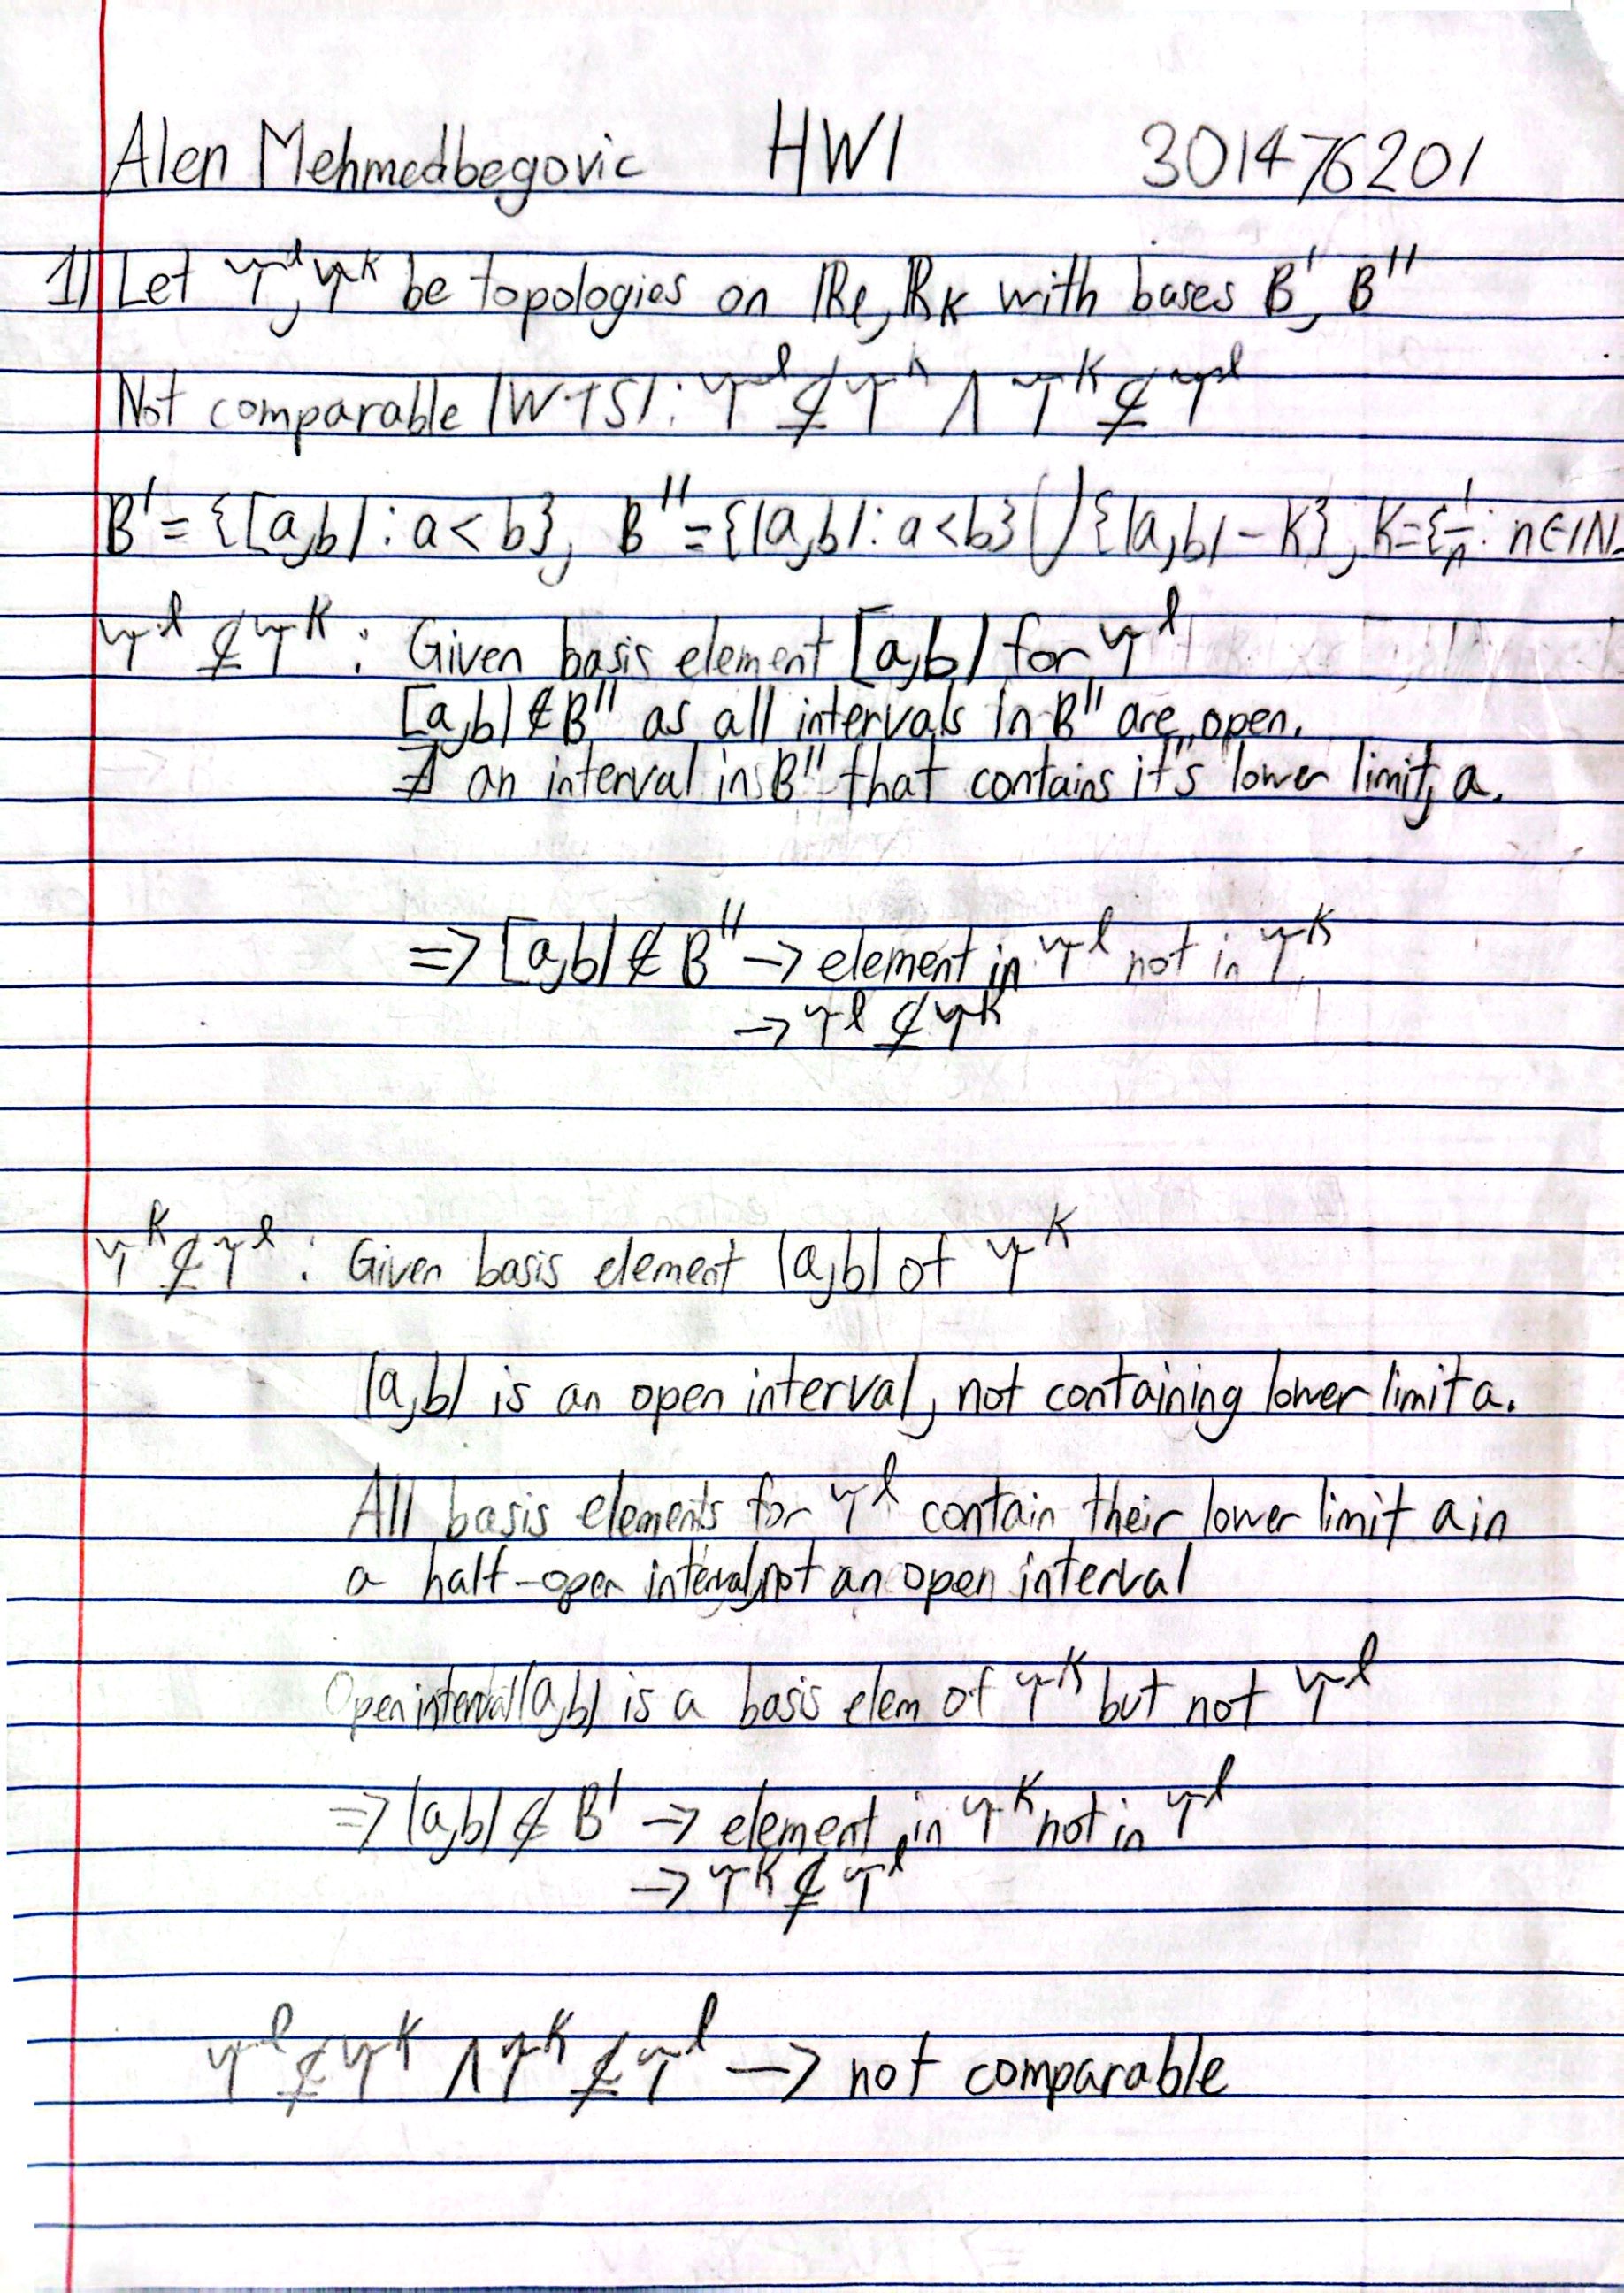 Alen Mehmedbegovic HW1 301476201
1) Let 𝒯^l, 𝒯^K be topologies on ℝ_l, ℝ_K with bases B', B''
Not comparable (WTS): 𝒯^l ⊈ 𝒯^K ∧ 𝒯^K ⊈ 𝒯^l
B' = {[a,b) : a < b}, B'' = {(a,b) : a < b} ∪ {(a,b) - K}, K = {1/n : n ∈ ℕ
𝒯^l ⊈ 𝒯^K : Given basis element [a,b) for 𝒯^l
[a,b) ∉ B'' as all intervals in B'' are "open".
∄ an interval in B'' that contains it's lower limit, a.
=> [a,b) ∉ B'' -> element in 𝒯^l not in 𝒯^K
-> 𝒯^l ⊈ 𝒯^K
𝒯^K ⊈ 𝒯^l : Given basis element (a,b) of 𝒯^K
(a,b) is an open interval, not containing lower limit a.
All basis elements for 𝒯^l contain their lower limit a in
a half-open interval, not an open interval
Open interval (a,b) is a basis elem of 𝒯^K but not 𝒯^l
=> (a,b) ∉ B' -> element in 𝒯^K not in 𝒯^l
-> 𝒯^K ⊈ 𝒯^l
𝒯^l ⊈ 𝒯^K ∧ 𝒯^K ⊈ 𝒯^l -> not comparable